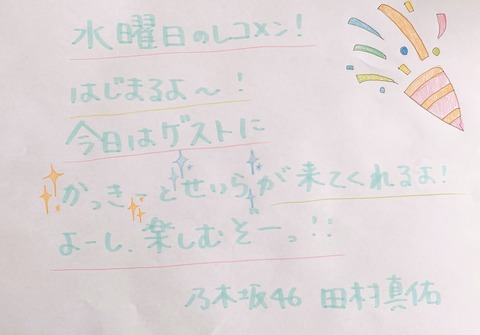 水曜日のレコメン!
はじまるよ~!
今日はゲストに
かっきーとせいらが来てくれるよ!
よーし、楽しむぞーっ!!
乃木坂46 田村真佑